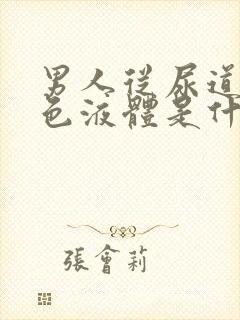 男人從尿道
色液體是什
張會莉